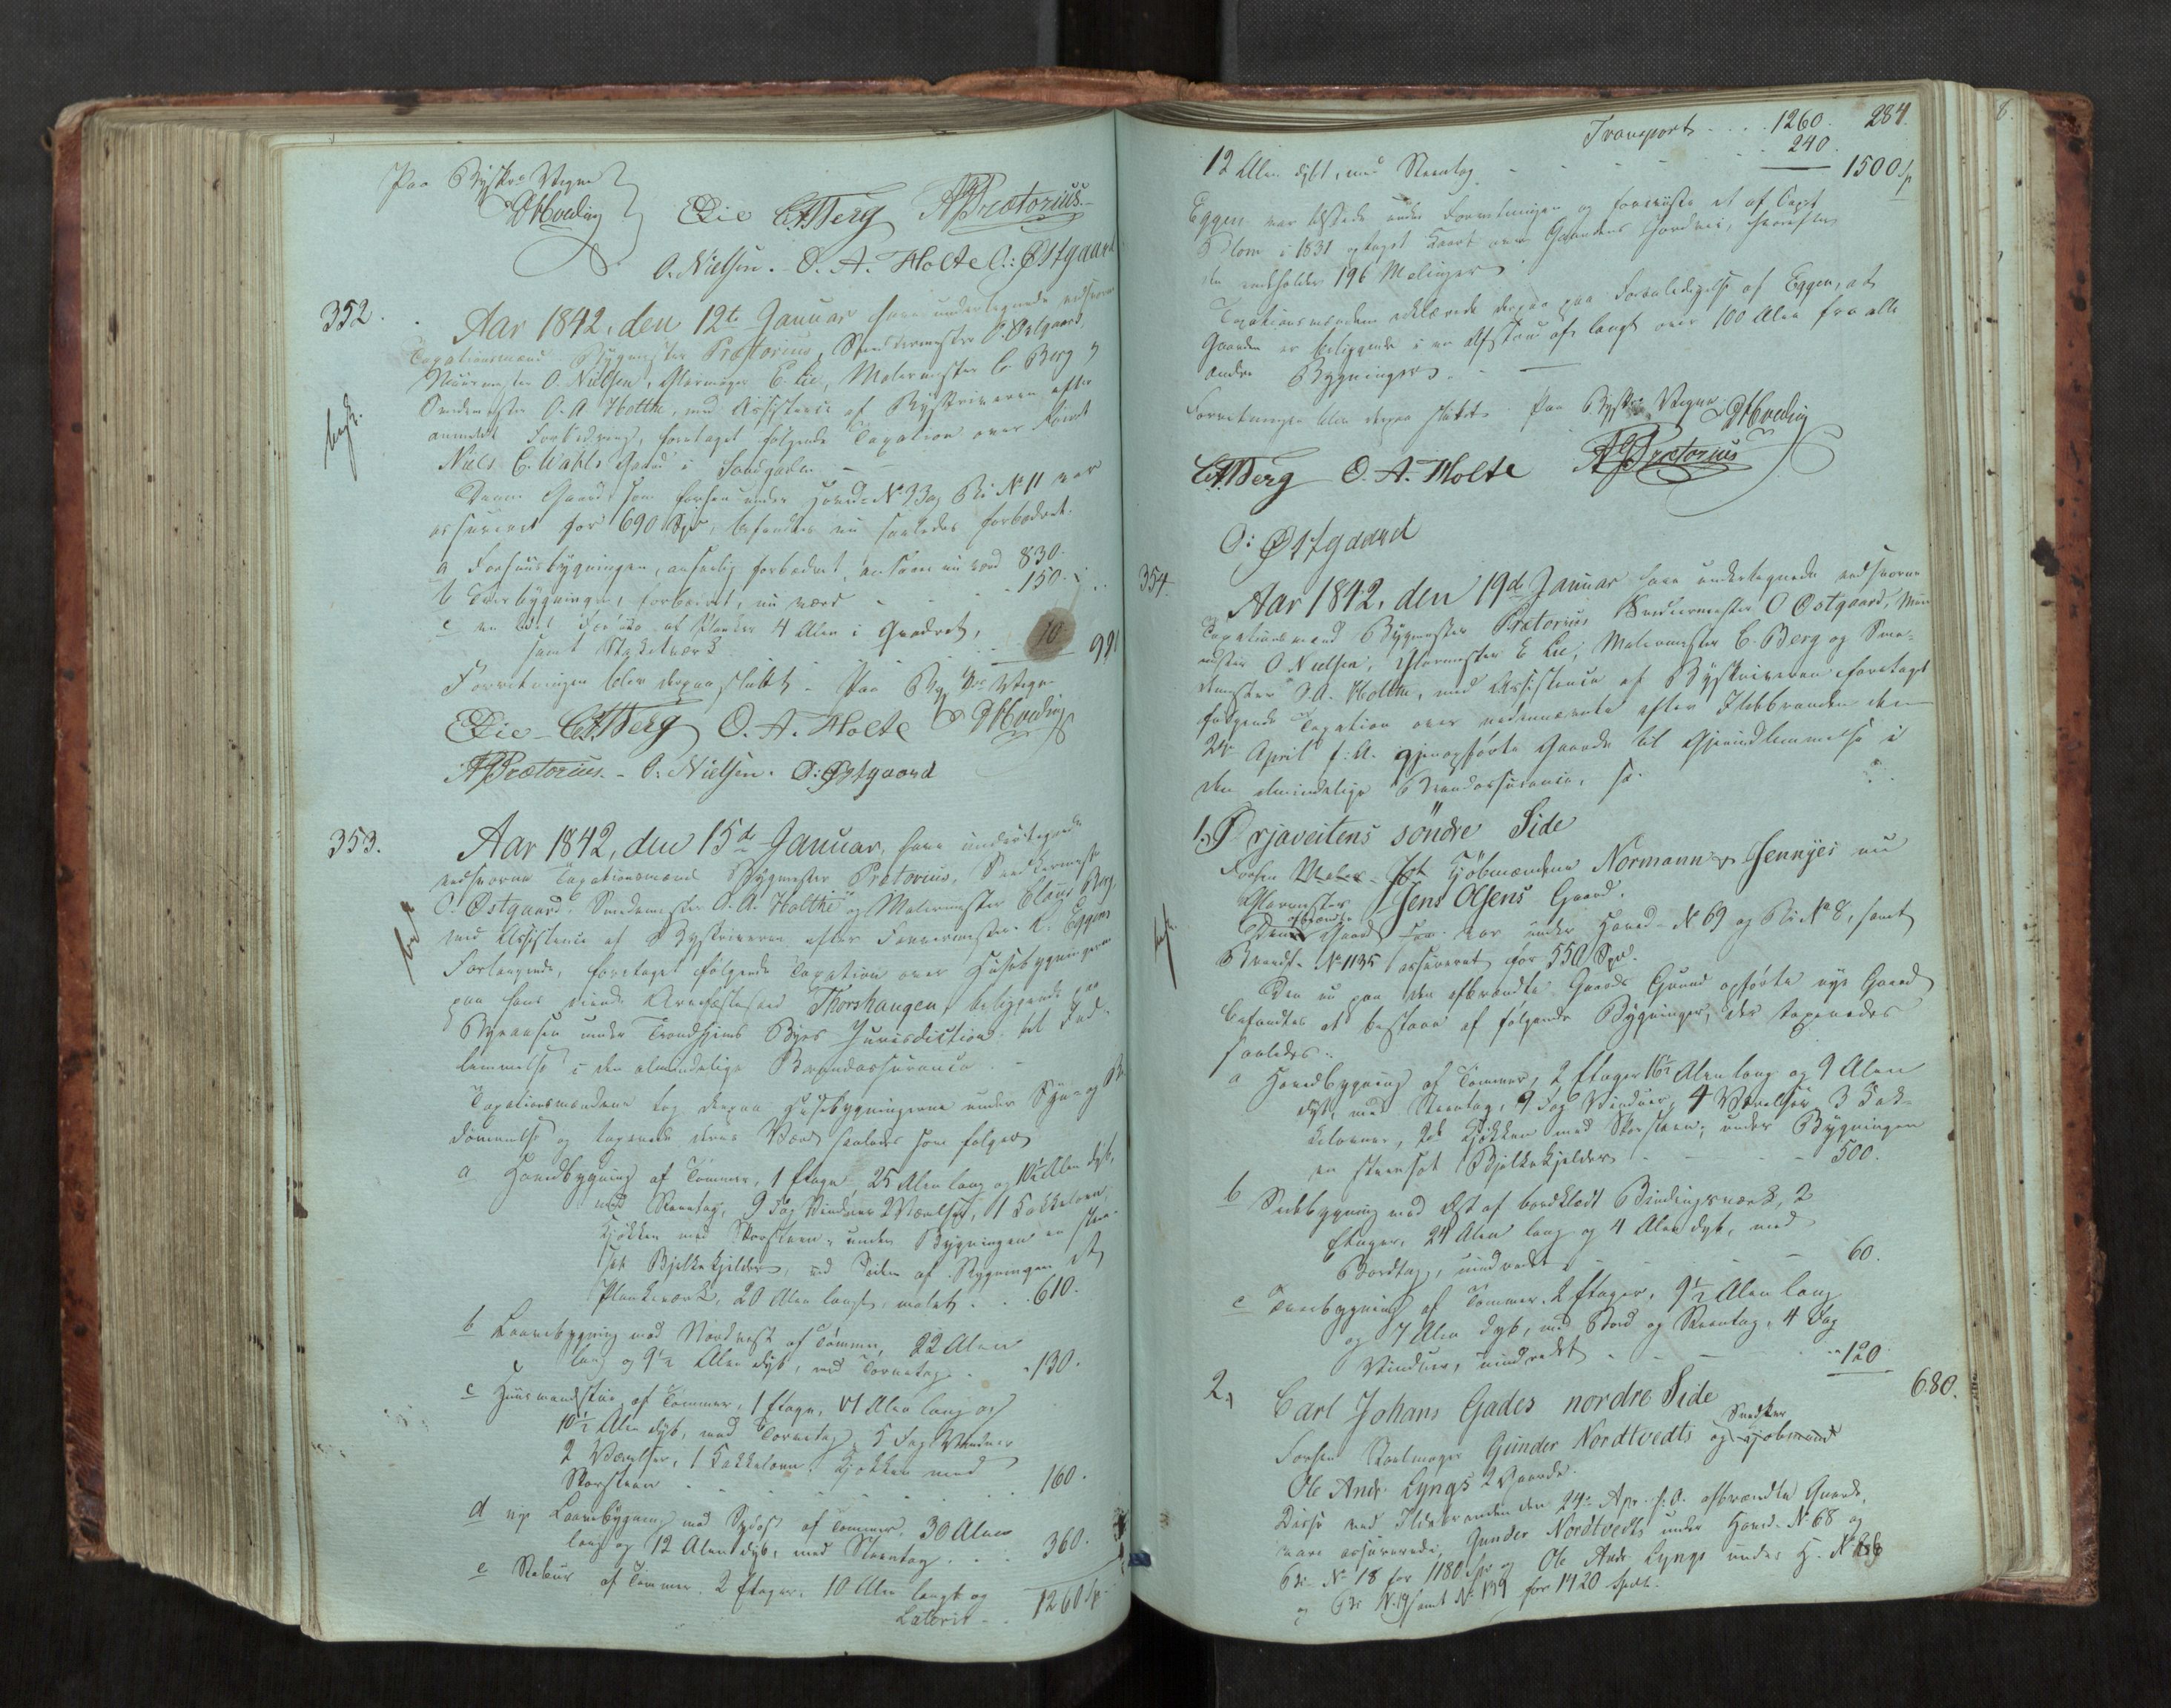 Paa Byskr's Vegne
Hveding
E Lie CABerg APrætorius.
O. Nielsen. O. A. Holte O: Østgaard
352.
Aar 1842, den 12te Januar have undertegnede edsvorne
Taxationsmænd Bygmester Prætorius, Snedkermester O. Østgaard,
Muurmester O. Nielsen, Glarmester E. Lie, Malermester C. Berg og
Smedemester O. A Holthe, med Assistence af Byskriveren, efter
anmeldt Forbedring, foretaget følgende Taxation over
Niels C. Wahls Gaard i Sandgaden. —
Denne Gaard, som forhen under Hoved-No 33 og Bi No 11 var
assureret for 690 Spd, befandtes nu saaledes forbedret.
a Forhuusbygningen, anseelig forbedret, ansaaes nu værd 830.
b Tverbygningen, forbedret, nu værd - - - 150.
c en af Planker 4 Alen i Qvadrat,
samt Stakitværk 10
99
Forretningen blev derpaa sluttet. Paa Byskr's Vegne
E Lie CABerg O. A. Holte Hveding
APrætorius. - O. Nielsen. O: Østgaard
353.
Aar 1842, den 15de Januar, have undertegnede
edsvorne Taxationsmænd Bygmester Prætorius, Snedkermester
O. Østgaard, Smedemester O. A. Holthe og Malermester Claus Berg,
med Assistence af Byskriveren efter Farvermester R. Eggens
Forlangende, foretaget følgende Taxation over Huusbygningerne
paa hans eiende Thorshaugen, beliggende paa
Byaasen under Trondhjems Byes Jurisdiction til Ind-
lemmelse i den almindelige Brandassurance. -
Taxationsmændene tog derpaa Huusbygningerne under Syn- og Be
dømmelse og taxerede deres Værd saaledes som følger
a Hovedbygning af Tømmer, 1 Etage, 25 Alen lang og 10½ Alen dyb,
med Steentag, 9 Fag Vinduer 2 Værelser, 1 Kakkelovn,
Kjøkken med Skorsteen, under Bygningen en steen-
sat Bjelkekjelder, ved Siden af Bygningen et
Plankeværk, 20 Alen langt, malet . . . 610.
b Laavebygning mod Nordvest af Tømmer, 22 Alen
lang og 9½ Alen dyb, med Torvetag . - 130.
c Huusmandsstue af Tømmer, 1 Etage, 11 Alen lang og
10½ Alen dyb, med Torvetag, 5 Fag Vinduer
2 Værelser, 1 Kakkelovn, Kjøkken med
Skorsteen . . . 160.
d nye Laavebygning mod Sydost af Tømmer, 30 Alen
lang og 12 Alen dyb, med Steentag . . . 360.
e Stabuur af Tømmer. 2 Etager. 10 Alen langt og
Lateris . . 1260 Sp.
Transport . . . . 1260. 284.
12 Alen dybt, med Steentag . . . 240.
1500 Sp
Eggen var tilstede under Forretningen og foreviste et af Capt
Blom i 1831 optaget Kaart over Gaardens Jordvei, hvorefter
den indholder 196 Mælinger.
Taxationsmændene erklærede derpaa paa Foranledigelse af Eggen, at
Gaarden er beliggende i en Afstand af langt over 100 Alen fra alle
andre Bygninger. —
Forretningen blev derpaa sluttet. Paa Byskr's Vegne Hveding
CABerg O. A. Holte APrætorius
O: Østgaard
354.
Aar 1842, den 19de Januar have undertegnede edsvorne
Taxationsmænd Bygmester Prætorius Snedkermester O Østgaard, Muur
mester O Nielsen, Glarmester E Lie, Malermester C. Berg og Sme-
demester O. A. Holthe, med Assistence af Byskriveren foretaget
følgende Taxation over nedennævnte efter Ildebranden den
24de April f. A. gjenopførte Gaarde til Gjenindlemmelse i
den almindelige Brandassurance, h:
1.) Prjaveitens søndre Side
Forhen Kjøbmændene Normann & Jennyes nu
Glarmester Jens Olsens Gaard.
Denne afbrændte Gaard var under Hoved-No 69 og Bi No 8, samt
Brandt. No 1135 assureret for 550 Spd.
Den nu paa den afbrændte Gaards Grund opførte nye Gaard
befandtes at bestaae af følgende Bygninger, der taxeredes
saaledes:
a Hovedbygning af Tømmer, 2 Etager 16½ Alen lang og 9 Alen
dyb, med Steentag, 9 Fag Vinduer, 4 Værelser 3 Kak-
kelovne, 2de Kjøkken med Skorsteen; under Bygningen
en steensat Bjelkekjelder . - - - 500.
b Sidebygning mod Øst af bordklædt Bindingsværk, 2
Etager, 24 Alen lang og 4 Alen dyb, med
Bordtag, indredet . - - - 60.
c Tverbygning af Tømmer. 2 Etager, 9½ Alen lang
og 7 Alen dyb, med Bord og Steentag, 4 Fag
Vinduer, indredet - - - 120
680.
2.) Carl Johans Gades nordre Side
Forhen Gunder Nordtvedts og Snedker
Ole Andr. Lyngs 2 Gaarde.
Disse ved Ildebranden den 24de Apr. f. A. afbrændte Gaarde,
vare assurerede, Gunder Nordtvedts under Hoved-No 68 og
Bi-No 18 for 1180 Spd og Ole Andr. Lyngs under H. No 68
og Bi No 19 samt No 139 for 1420 Spdl.